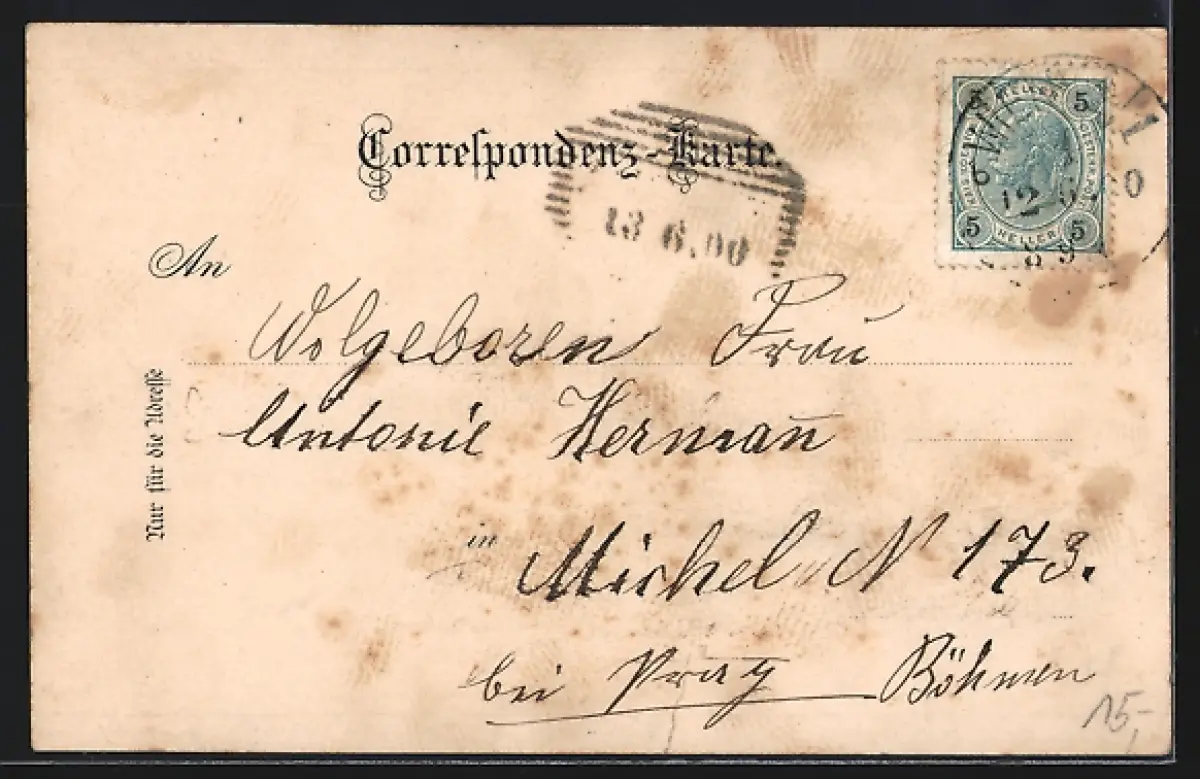 Correspondenz-Karte.
13 6.00
5 HELLER 5
WIEN
12 6
5 HELLER 5
8 9
An
Wolgeboren Frau
Antonie Herman̄
in Michel N 173.
bei Prag Böhmen
Nur für die Adresse
15-